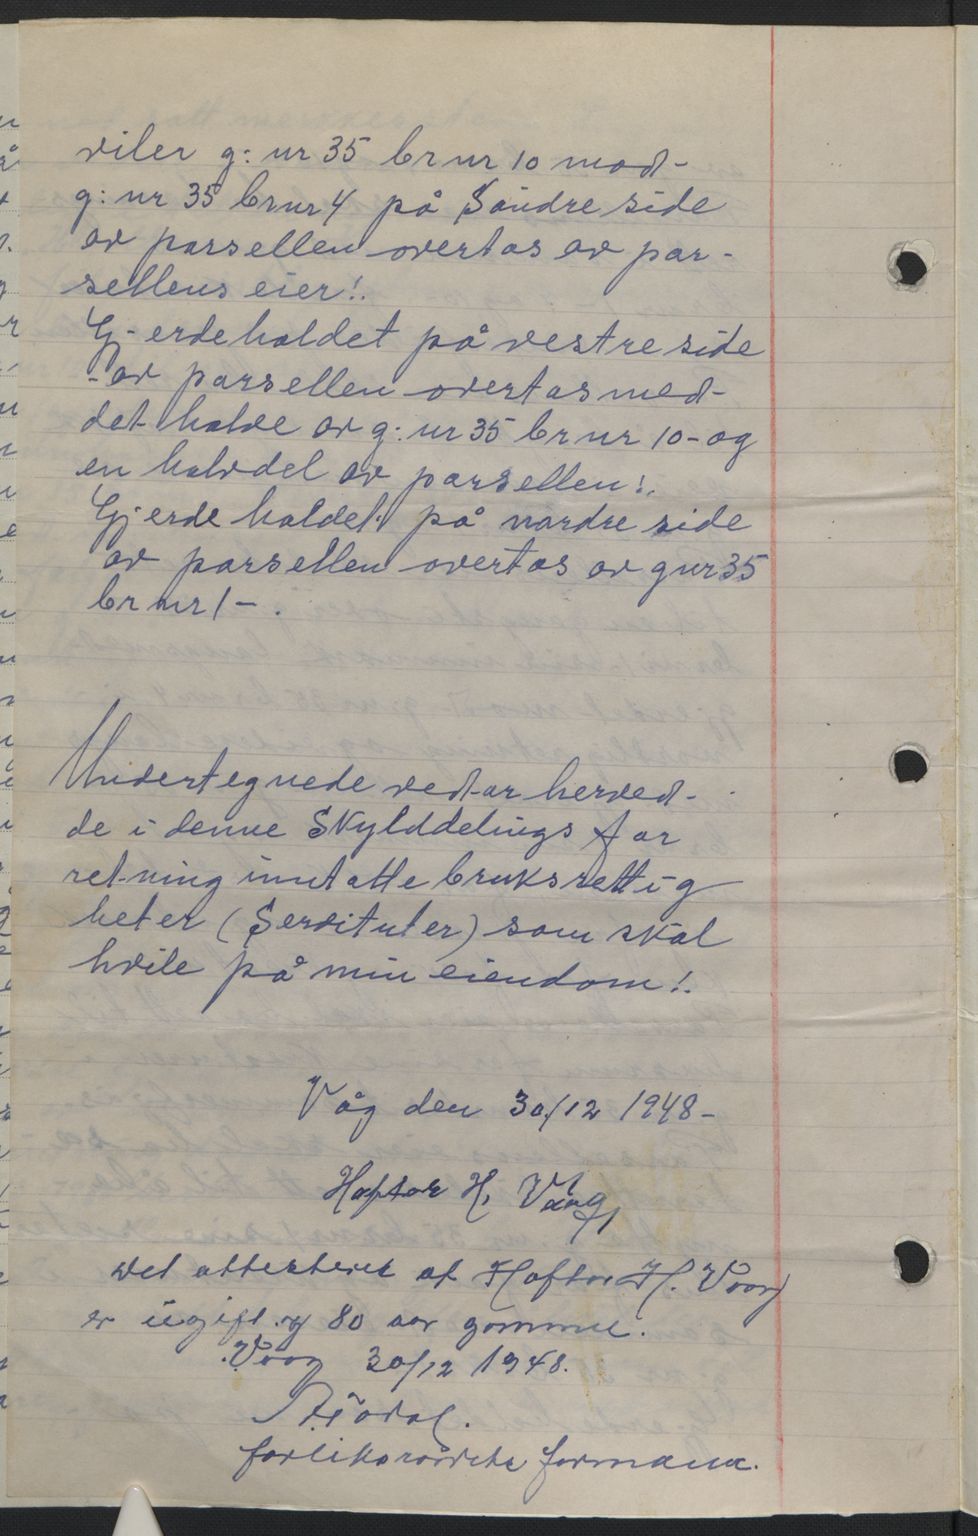 viler g: nr 35 brnr 10 mod-
g: nr 35 brnr 4 på Søndre side
av parsellen overtas av par-
sellens eier!.
Gj-erdeholdet på vestre side
-av parsellen overtas med-
det halve av g: nr 35 brnr 10-og
en halvdel av parsellen!.
Gjerdeholdet på nordre side
av parsellen overtas av gnr 35
brnr 1-.
Undertegnede vedtar herved-
de i denne Skylddelings for
retning inntatte bruksrettig
heter (Servituter) som skal
hvile på min eiendom!.
Våg den 30/12 1948-
Haftor H. Vaag
Det attesteres at Haftor H. Vaag
er ugift og 80 aar gammel.
Vaag 30/12 1948.
forliksraadets formann.